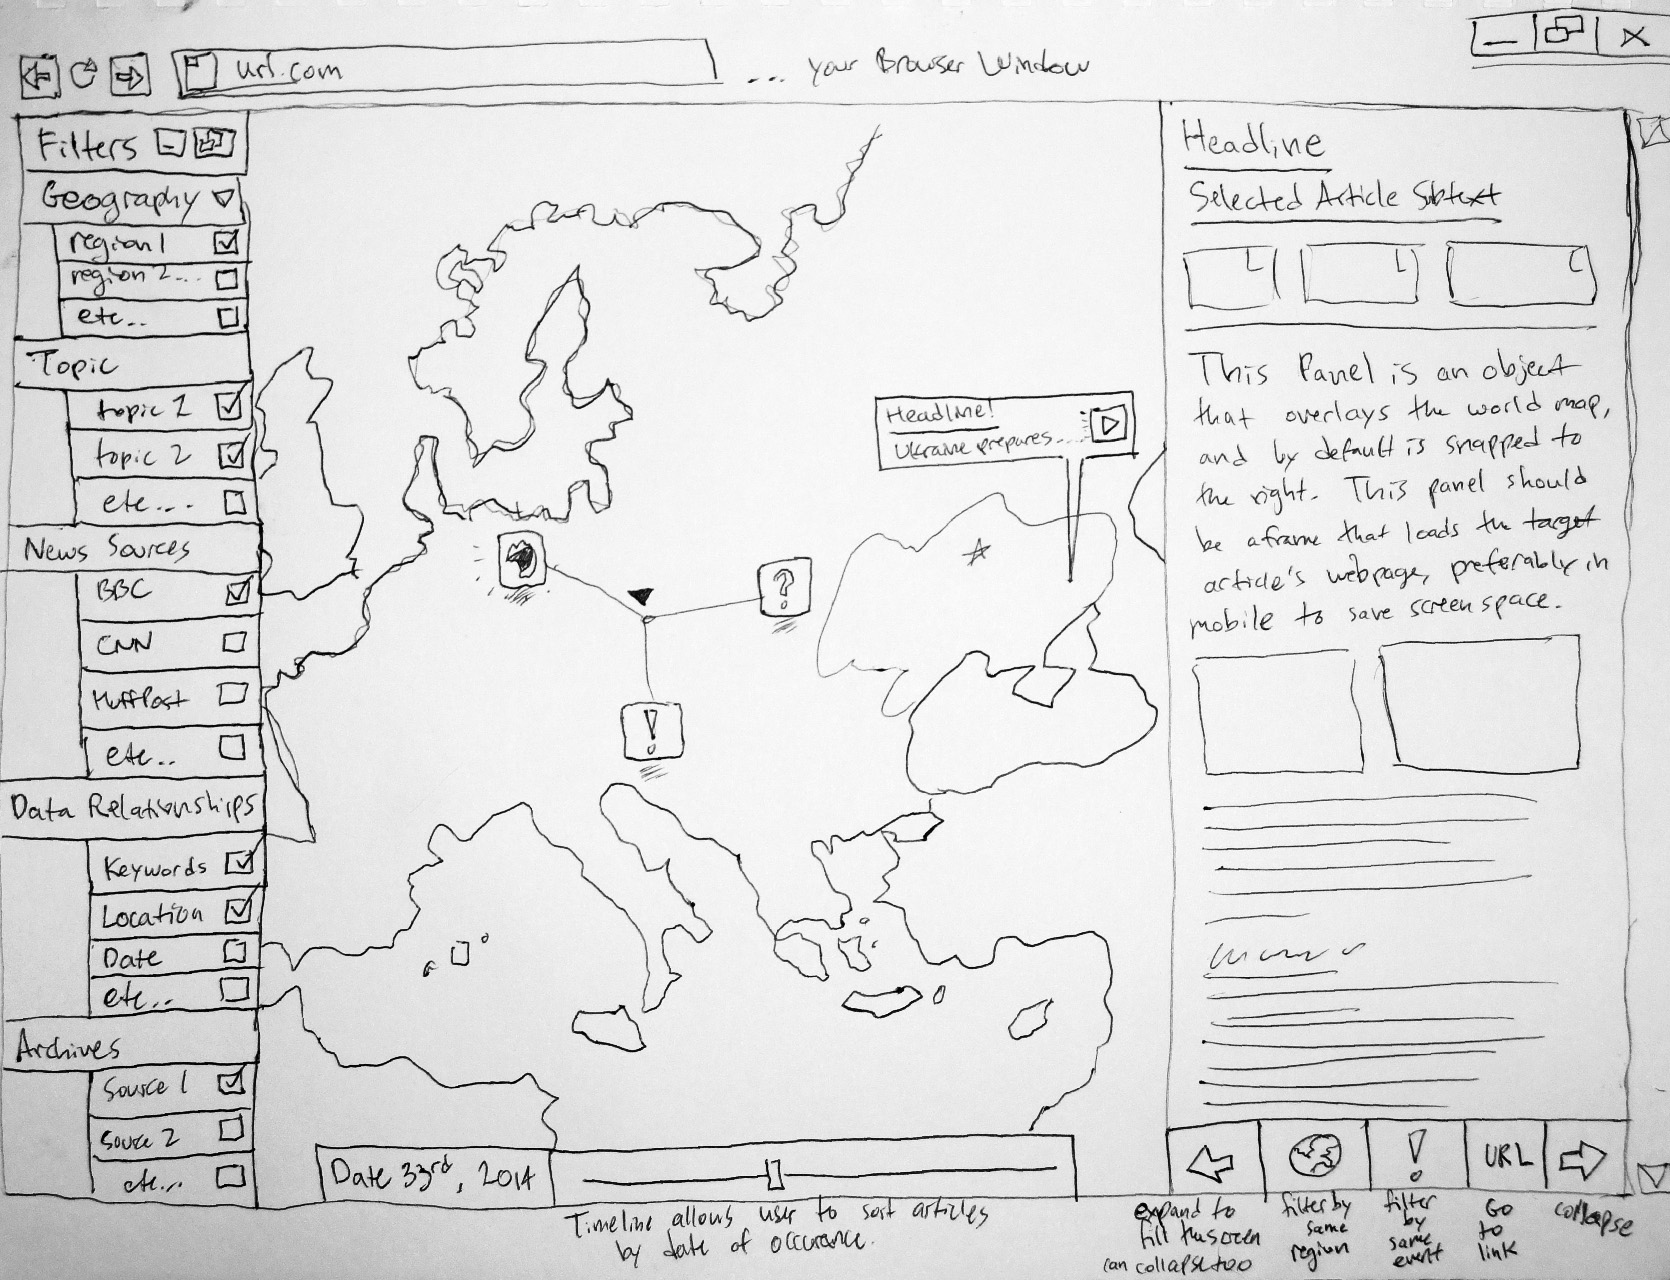 url.com
... your Browser Window
Filters
Geography
region 1
region 2...
etc..
Topic
topic 1
topic 2
etc....
News Sources
BBC
CNN
HuffPost
etc..
Data Relationships
Keywords
Location
Date
etc...
Archives
Source 1
Source 2
etc...
Headline!
Ukraine prepares....
?
!
Date 33rd, 2014
Timeline allows user to sort articles
by date of occurance.
Headline
Selected Article Subtext
This Panel is an object
that overlays the world map,
and by default is snapped to
the right. This panel should
be a frame that loads the target
article's webpage, preferably in
mobile to save screen space.
!
URL
expand to
fill the screen
can collapse too
filter by
same
region
filter
by
same
event
Go
to
link
collapse